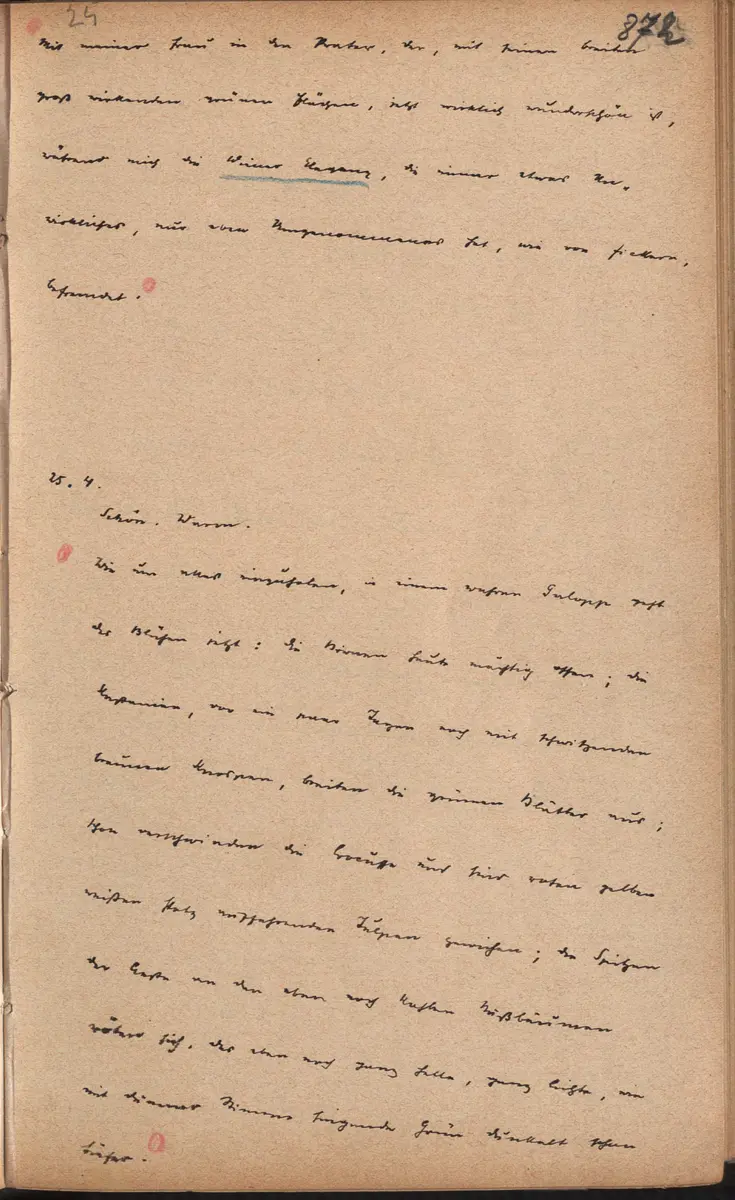 24
872
Mit meiner Frau in den Prater, der, mit seinen breiten
groß wirkenden grünen Flächen, jetzt wirklich wunderschön ist,
während mich die Wiener Eleganz, die immer etwas Un-
wirkliches, nur eben Angenommenes hat, wie von Fiakern,
befremdet.
25. 4.
Schön. Warm.
Wie um alles einzuholen, in einem wahren Galopp geht
das Blühen jetzt: die Birnen heute mächtig offen; die
Kastanien, vor ein paar Tagen noch mit schwitzenden
braunen Knospen, breiten die grünen Blätter aus;
schon verschwinden die Crocusse und sind roten gelben
weißen stolz auffahrenden Tulpen gewichen; die Spitzen
der Äste an den eben noch kahlen Nußbäumen
röten sich, das eben noch ganz helle, ganz lichte, wie
mit dünner Stimme singende Grün dunkelt schon
tiefer.